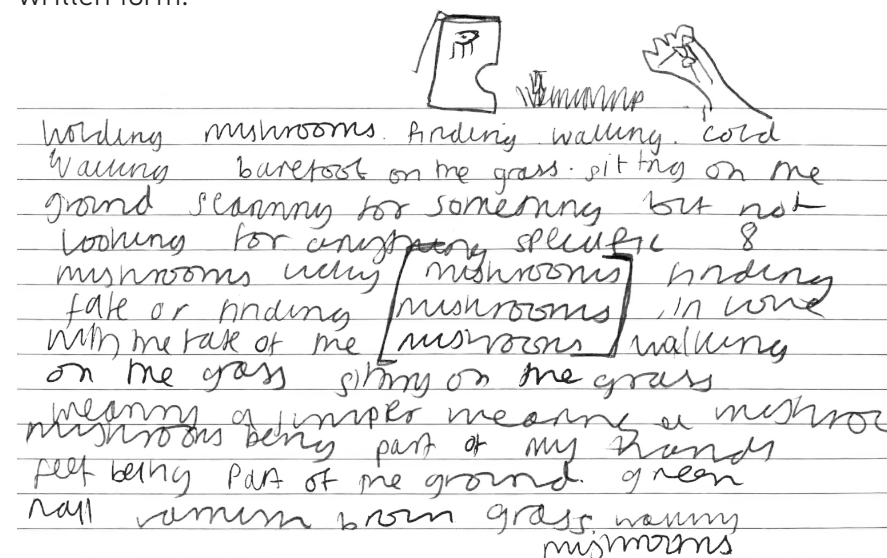 written form.
holding mushrooms. finding walking. cold
walking barefoot on the grass. sitting on the
ground scanning for something but not
looking for anything specific 8
mushrooms mushrooms finding
fate or finding mushrooms in love
with the fate of the mushrooms walking
on the grass sitting on the grass
meaning a jumper meaning a
mushrooms being part of my hands
feet being part of the ground. green
nail brown grass.
mushrooms